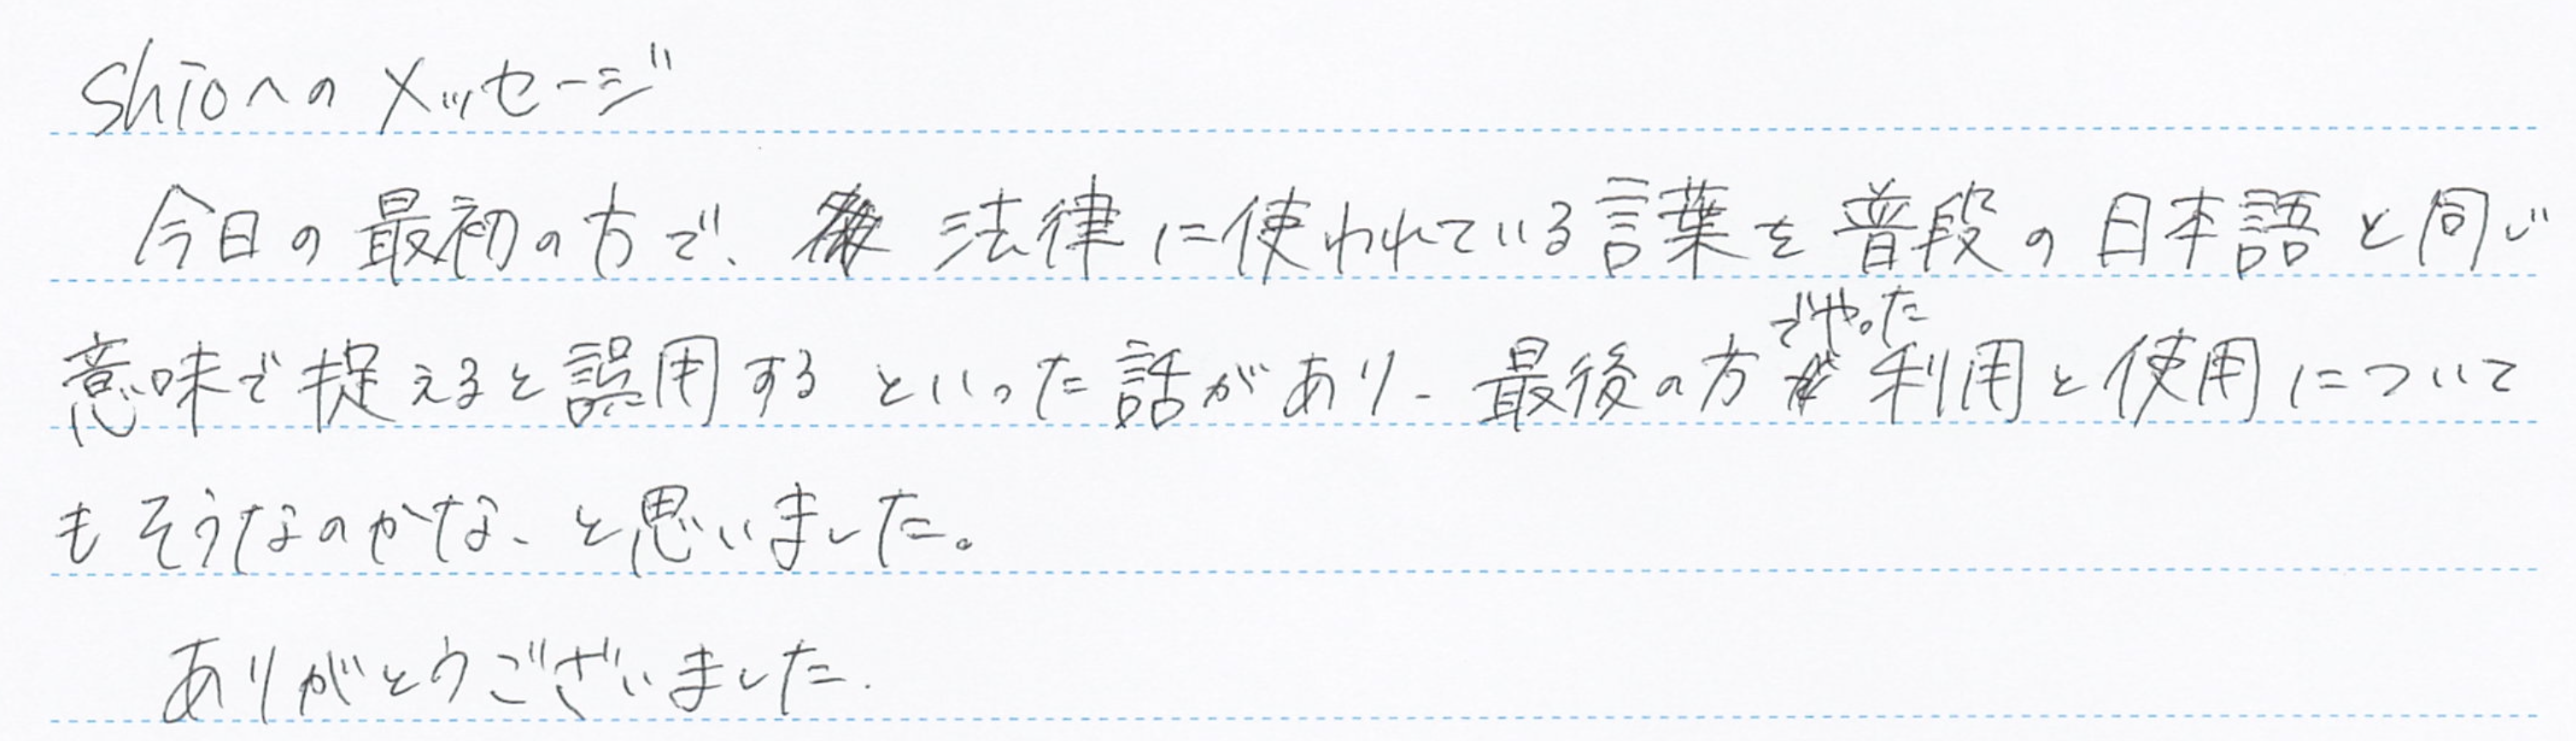 shioへのメッセージ
今日の最初の方で、法律に使われている言葉を普段の日本語と同じ
意味で捉えると誤用するといった話があり、最後の方でやった利用と使用について
もそうなのかな、と思いました。
ありがとうございました.